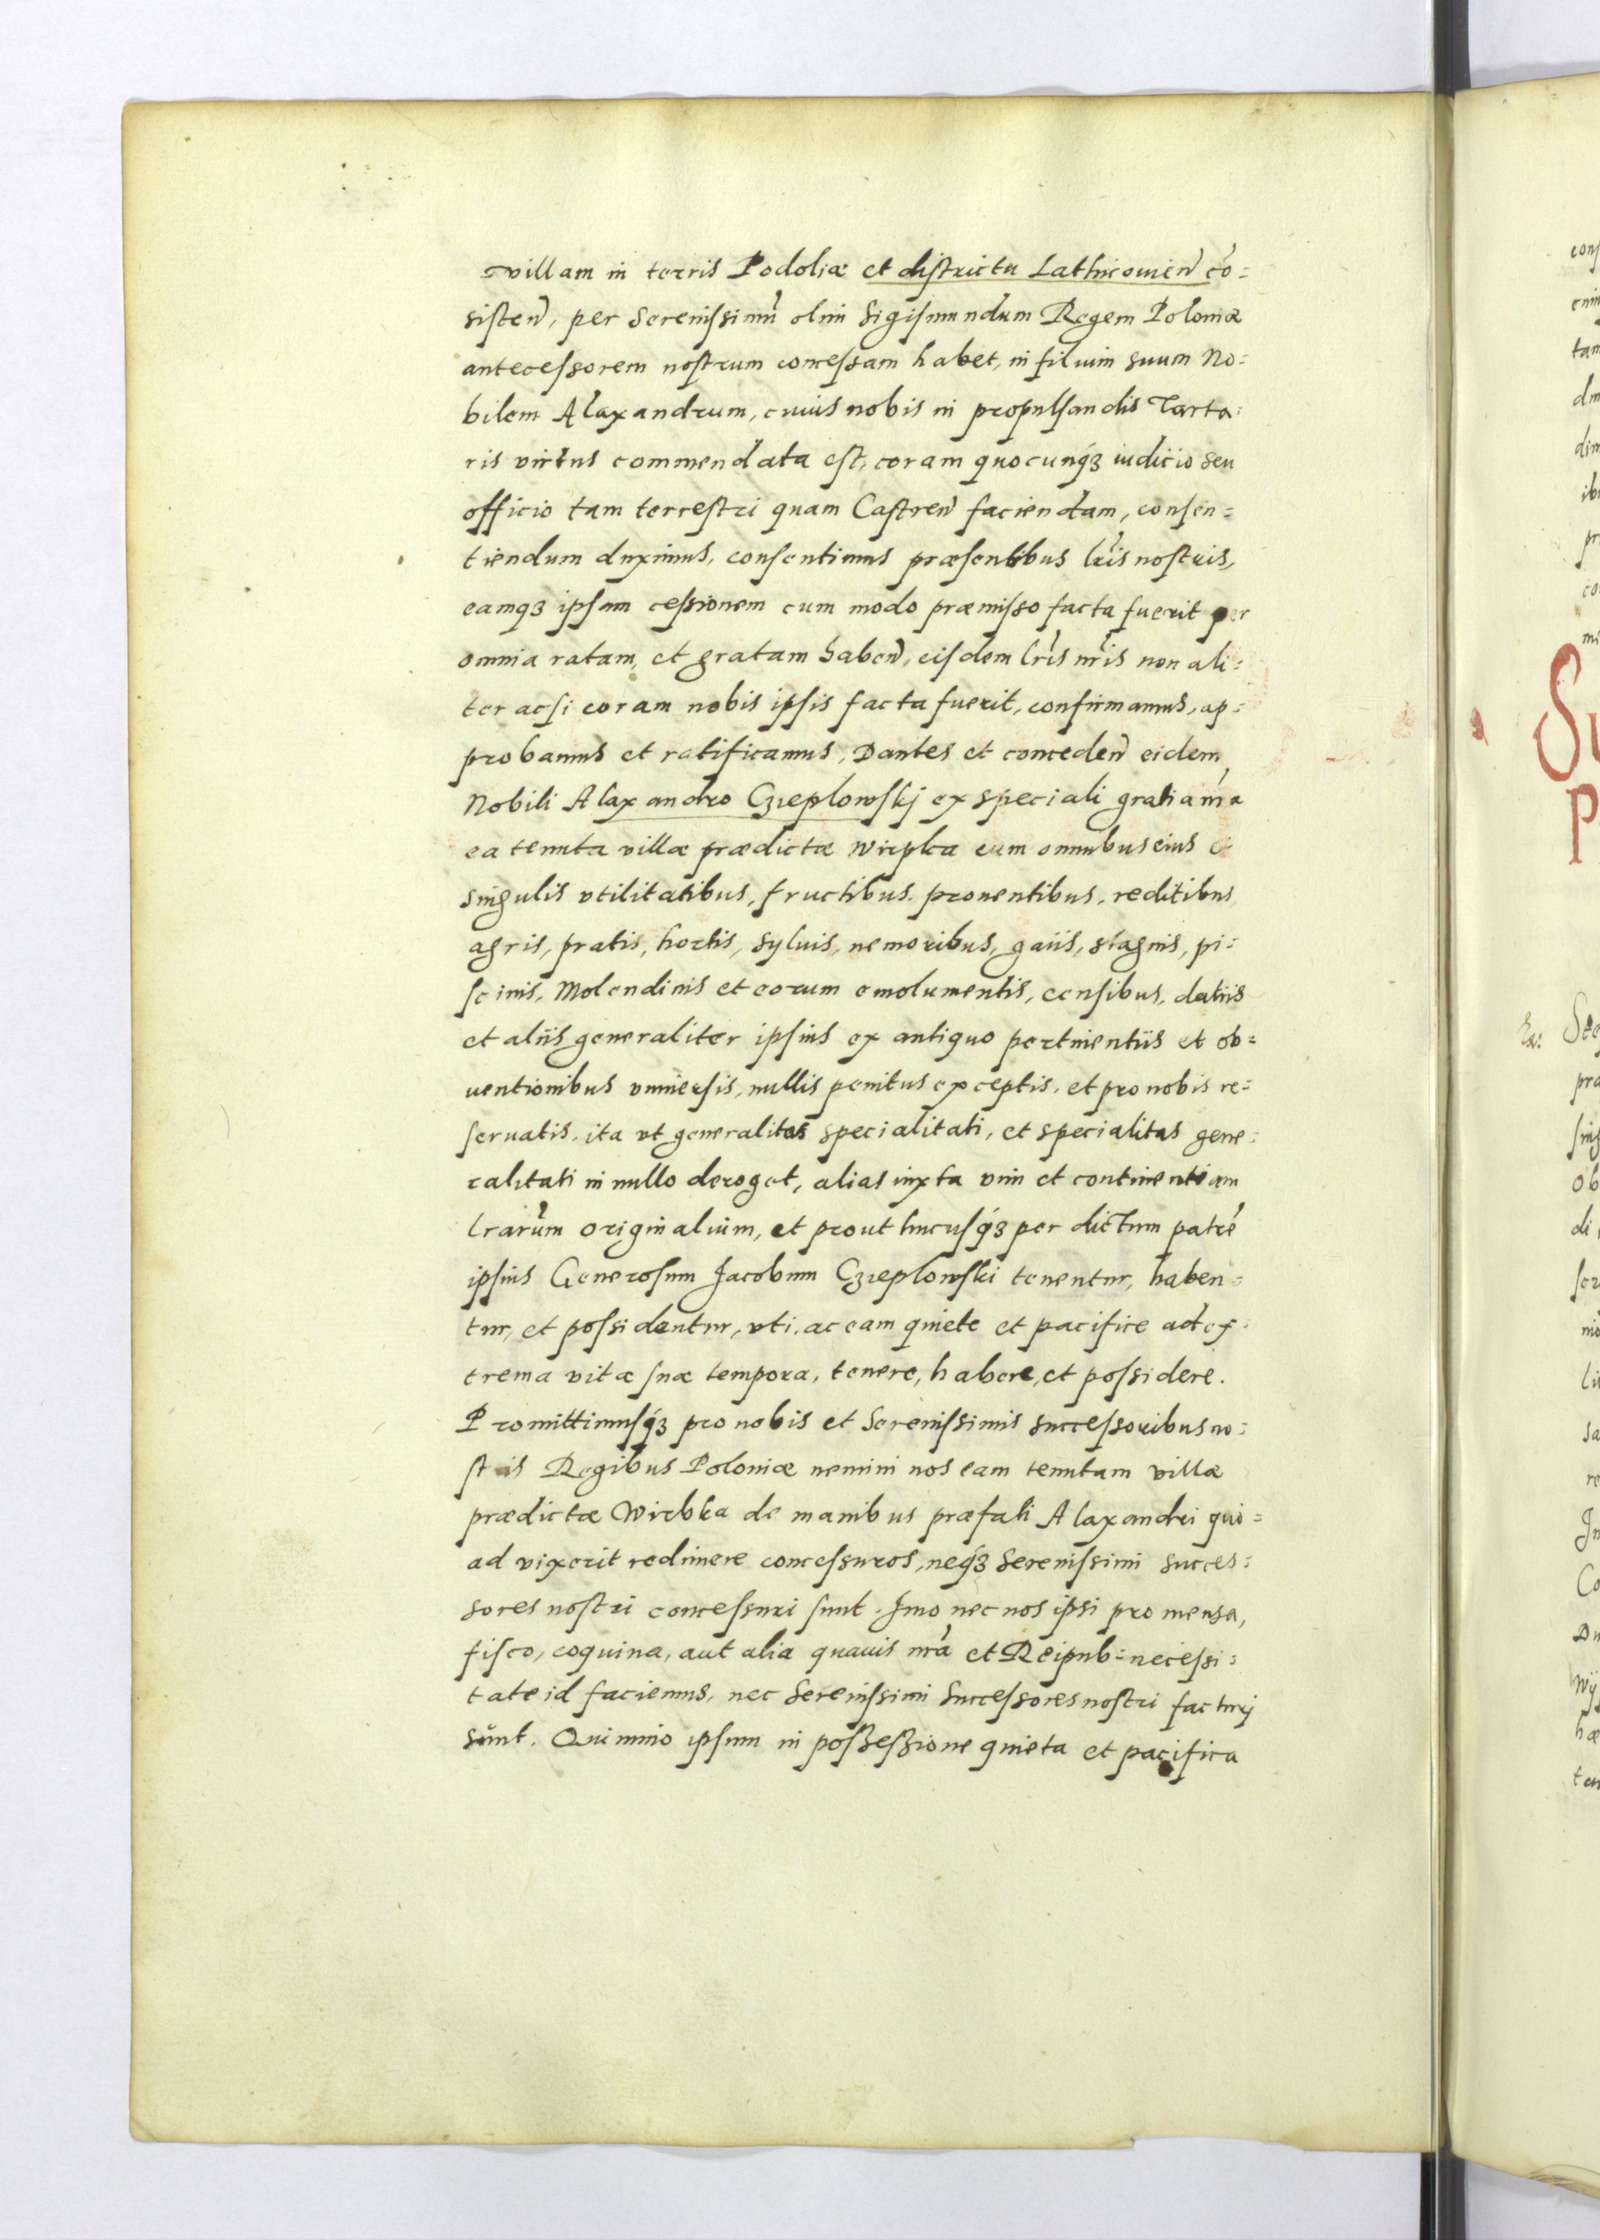 villam in terris Podoliæ et districtu Lathicouien̄ cō=
sisten̄, per Serenissimū olim Sigismundum Regem Poloniæ
antecessorem nostrum concessam habet, in filium suum No=
bilem Alaxandrum, cuius nobis in propulsandis Tarta=
ris virtus commendata est, coram quocunq́ꝫ iudicio seu
officio tam terrestri quam Castren̄ faciendam, consen=
tiendum duximus, consentimus præsentibus lr̄is nostris,
eamqꝫ ipsam cessionem cum modo præmisso facta fuerit per
omnia ratam, et gratam haben̄, eisdem lr̄is nr̄is non ali=
ter acsi coram nobis ipsis facta fuerit, confirmamus, ap=
probamus et ratificamus, Dantes et conceden̄ eidem
Nobili Alaxandro Czieplowskj ex speciali gratia nr̄a
ea tenuta villæ prædictæ Wirpka cum omnibus eius et
singulis vtilitatibus, fructibus, prouentibus, reditibus
agris, pratis, hortis, syluis, nemoribus, gaiis, stagnis, pi=
scinis, Molendinis et eorum emolumentis, censibus, datiis
et aliis generaliter ipsius ex antiquo pertinentiis et ob=
uentionibus vniuersis, nullis penitus exceptis, et pro nobis re=
seruatis, ita vt generalitas specialitati, et specialitas gene=
ralitati in nullo deroget, alias iuxta vim et continentiam
lrarūm originalium, et prout hucusq́ꝫ per dictum patrē
ipsius Generosum Jacobum Czieplowski tenentur, haben=
tur, et possidentur, vti, ac eam quiete et pacifice ad ex=
trema vitæ suæ tempora, tenere, habere, et possidere.
Promittimusq́ꝫ pro nobis et Serenissimis successoribus no=
st is Regibus Poloniæ nemini nos eam tenutam villæ
prædictæ Wirbka de manibus præfati Alaxandri quo=
ad vixerit redimere concessuros, neq́ꝫ Serenissimi succes=
sores nostri concessuri sunt. Imo nec nos ipsi pro mensa,
fisco, coquina, aut alia quauis nr̄a et Reipub= necessi=
tate id faciemus, nec Serenissimi Successores nostri facturj
sunt. Quinimo ipsum in possessione quieta et pacifica